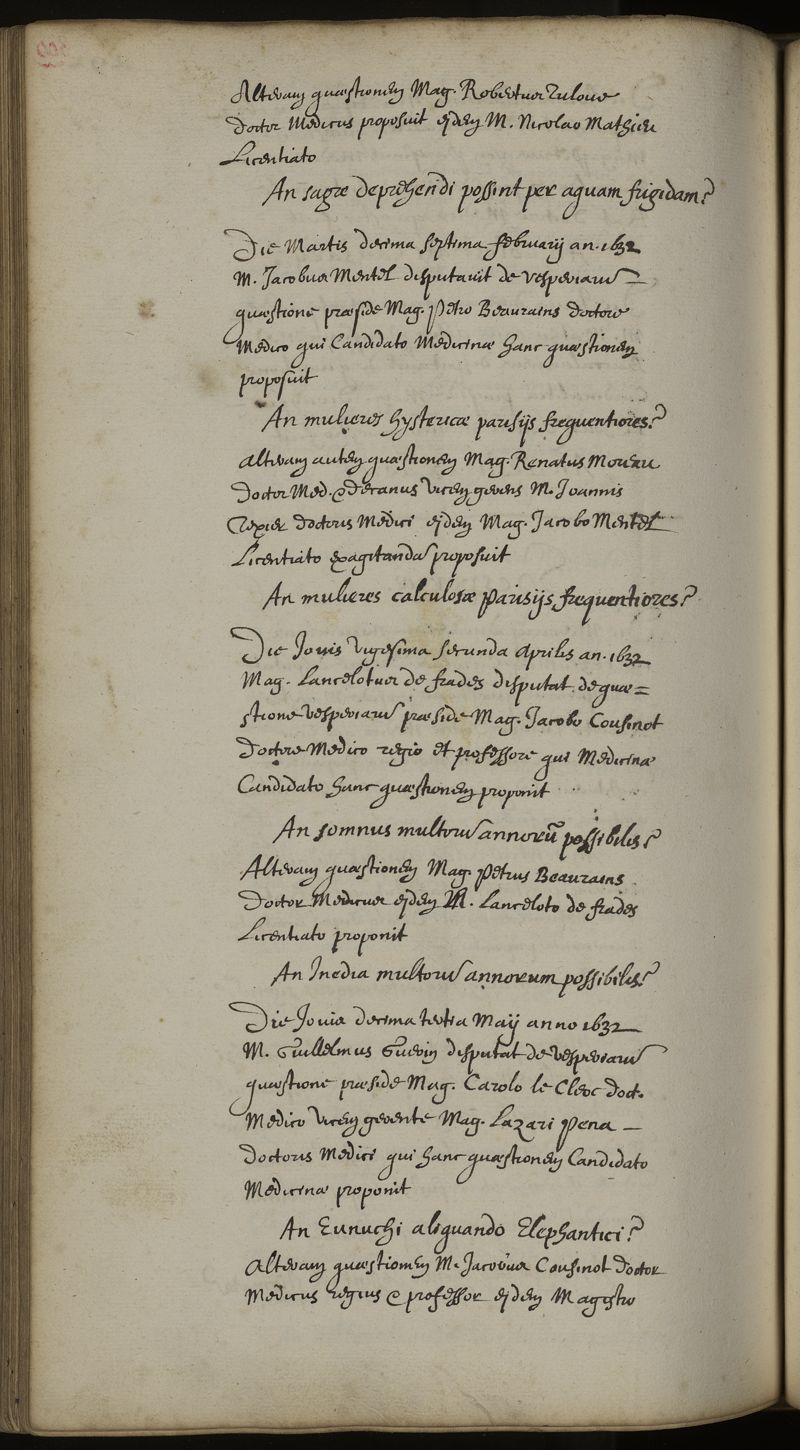 Alteram quæstionem Mag. Robertus Tuloue
doctor Medicus proposuit ejdem M. Nicolao Mathieu
Licentiato
An sagæ deprehendi possint per aquam frigidam?
Die Martis decima septima februarij an. 1632
M. Jacobus Mentel disputavit de vesperiarũ
quæstione præside Mag. Petro Beaurains doctore
Medico qui Candidato Medicinæ hanc quæstionem
proposuit
An mulieres hystericæ parisijs frequentiores?
Alteram autem quæstionem Mag. Renatus Moreau
doctor Med. & decanus vicem gerens M. Joannis
Texier doctoris Medici ejdem Mag. Jacobo Mentel
Licentiato exagitandã proposuit
An mulieres calculosæ parisijs frequentiores?
Die Jovis vigesima secunda Aprilis an. 1632
Mag. Lancelotus de frades disputat de quæ=
stione vesperiarũ præside Mag. Jacobo Cousinot
doctore Medico regio et professore qui Medicinæ
Candidato hanc quæstionem proponit
An somnus multorũ annorũ possibilis?
Alteram quæstionem Mag. Petrus Beaurains
doctor Medicus ejdem M. Lanceloto de frades
Licentiato proponit
An Inedia multorũ annorum possibilis?
Die Jovis decima tertia Maij anno 1632
M. Guillelmus Guerin disputat de vesperiarũ
quæstione præside Mag. Carolo le Clerc doct.
Medico vicem gerente Mag. Lazari Pena
doctoris Medici qui hanc quæstionem Candidato
Medicinæ proponit
An Eunuchi aliquando Elephantici?
Alteram quæstionem M. Jacobus Cousinot doctor
Medicus regius & professor ejdem Magistro